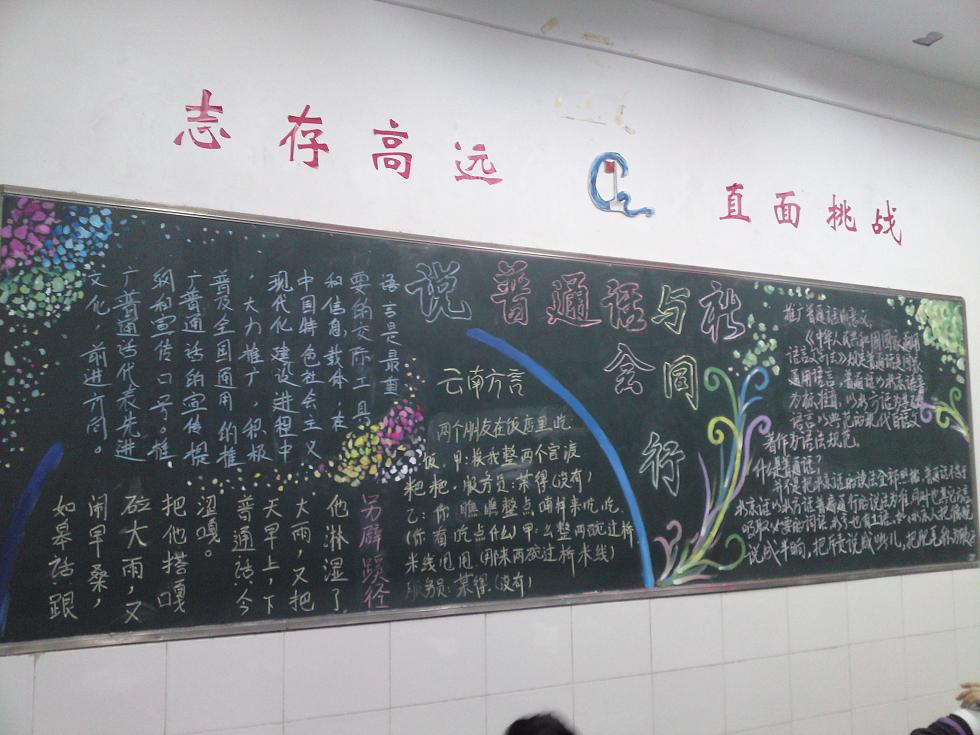 志存高远
直面挑战
说普通话与社
会同
行
语言是最重
要的交际工具
和信息载体，在
中国特色社会主义
现代化建设进程中
，大力推广，积极
普及全国通用的推
广普通话的宣传提
纲和宣传口号。推
广普通话代表先进
文化，前进方向。
另辟蹊径
他淋湿了
大雨，又把
天早上，下
普通话：今
涩嘎。
把他搭嘎
砬大雨，又
闹早桑，
如皋话：跟
云南方言
两个朋友在饭店里吃
饭，甲：挨我整两个官渡
粑粑，服务员：某得（没有）
乙：你瞧瞧整点哪样来吃吃。
（你看吃点什么）甲：么整两碗过桥
米线甩甩（用来两碗过桥米线）
服务员：某得（没有）
推广普通话的意义
《中华人民共和国国家通用
语言文字法》规定普通话是国家
通用语言。普通话以北京语音
为标准音，以北方话为基础
，以典范的现代白话文
著作为语法规范。
什么是普通话？
并不是把北京话的读法全部照搬，普通话
说成半晌，把所